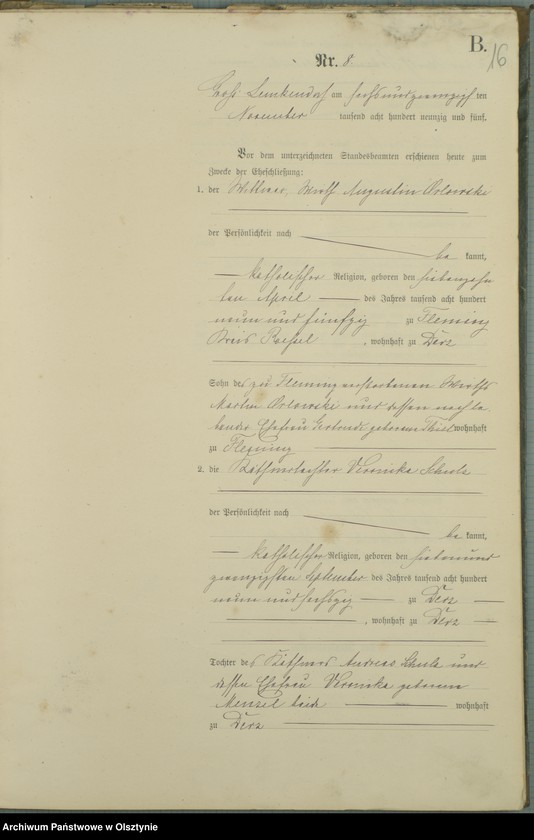 B.
16
Nr. 8.
Groß Lemkendorf am sechsundzwanzigsten
November tausend acht hundert neunzig und fünf.
Vor dem unterzeichneten Standesbeamten erschienen heute zum
Zwecke der Eheschließung:
1. der Wittwer, Wirth Augustin Orlowski
der Persönlichkeit nach
be kannt,
katholischer Religion, geboren den siebenzehn
ten April des Jahres tausend acht hundert
neun und fünfzig zu Fleming
Kreis Roessel, wohnhaft zu Derz
Sohn des zu Fleming verstorbenen Wirths
Orlowski und dessen nachle
bende Ehefrau Gertrud geborene Thiel wohnhaft
zu Fleming
2. die Käthnertochter Veronika
der Persönlichkeit nach
be kannt,
katholischer Religion, geboren den siebenund
zwanzigsten September des Jahres tausend acht hundert
neun und sechszig zu Derz
, wohnhaft zu Derz
Tochter des Käthners Andreas und
dessen Ehefrau Veronika geborene
Menzel beide wohnhaft
zu Derz
Archiwum Państwowe w Olsztynie